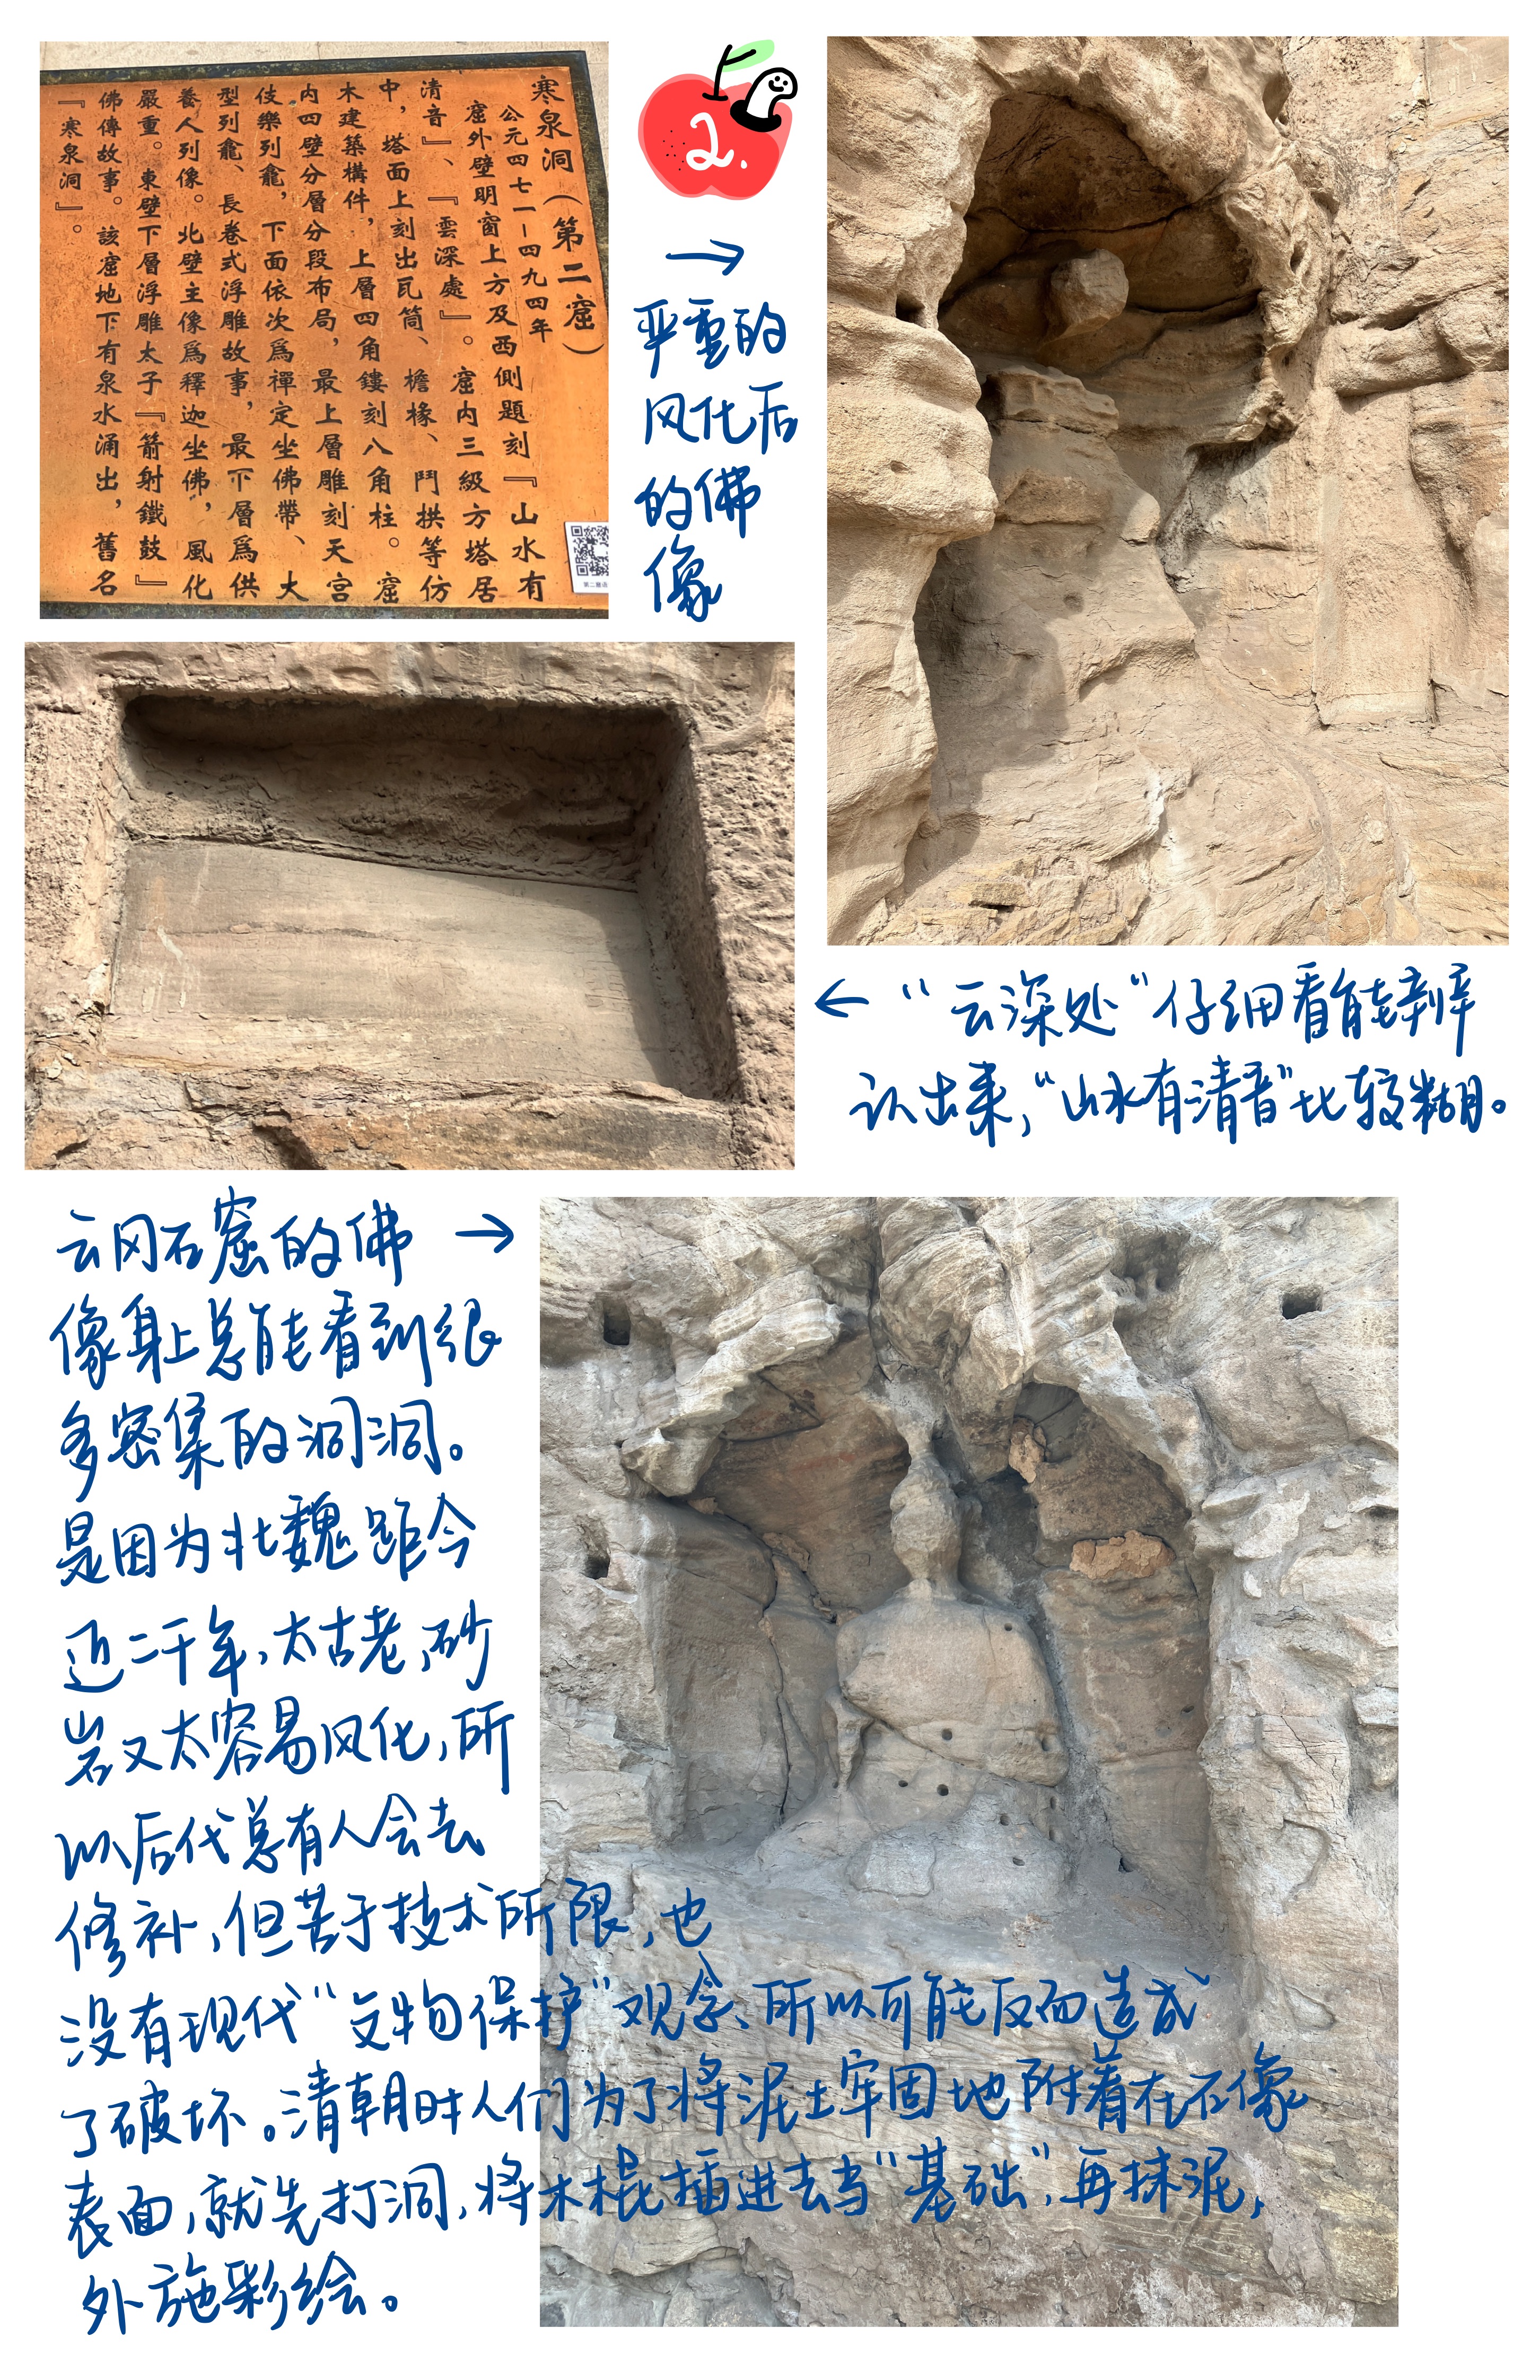 寒泉洞（第二窟）
公元四七一－四九四年
窟外壁明窗上方及西側題刻『山水有
清音』、『雲深處』。窟内三級方塔居
中，塔面上刻出瓦筒、檐椽、鬥拱等仿
木建築構件，上層四角鏤刻八角柱。窟
内四壁分層分段布局，最上層雕刻天宮
伎樂列龕，下面依次爲禪定坐佛帶、大
型列龕、長卷式浮雕故事，最下層爲供
養人列像。北壁主像爲釋迦坐佛，風化
嚴重。東壁下層浮雕太子『箭射鐵鼓』
佛傳故事。該窟地下有泉水涌出，舊名
『寒泉洞』。
2.
→
严重的
风化后
的佛
像
← “云深处”仔细看能辨
认出来，“山水有清音”比较糊。
云冈石窟的佛 →
像身上总能看到很
多密集的洞洞。
是因为北魏距今
近二千年，太古老，砂
岩又太容易风化，所
以后代总有人会去
修补，但苦于技术所限，也
没有现代“文物保护”观念、所以可能反而造成
了破坏。清朝时人们为了将泥土牢固地附着在石像
表面，就先打洞，将木棍插进去当“基础”，再抹泥，
外施彩绘。